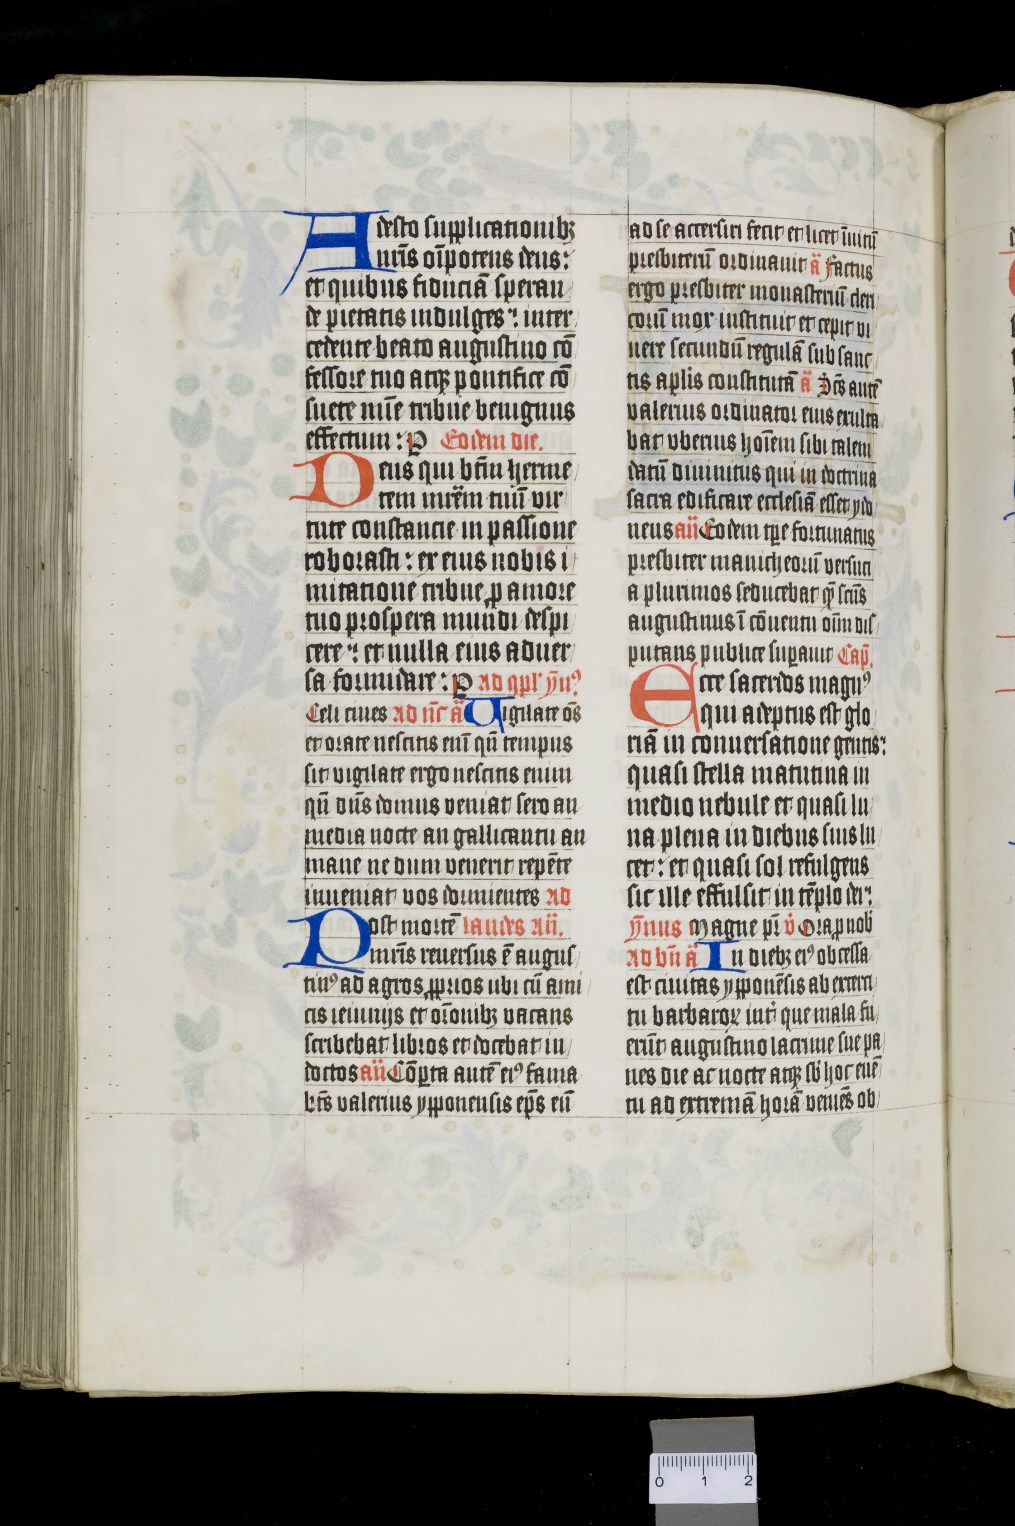 Adesto supplicationibꝫ
nr̄is oīpotens deus:
et quibus fiduciā speran
de pietatis indulges: inter
cedente beato augustino cō
fessore tuo atqꝫ pontifice cō
suete mīe tribue benignus
effectum: P Eodem die.
Deus qui btm̄ herme
tem mrēm tuū vir
tute constancie in passione
roborasti: ex eius nobis i
mitatione tribue ꝑ amore
tuo prospera mundi despi
cere: et nulla eius aduer
sa formidare: P ad ꝯpl' ẏn⁹
Celi ciues ad nc̄ ā Uigilate ōs
et orate nescitis eni qn̄ tempus
sit vigilate ergo nescitis enim
qn̄ dn̄s domus veniat sero an
media nocte an gallicantu an
mane ne dum venerit repēte
inueniat vos dormientes ad
Post mortē laudes an̄.
mr̄is reuersus ē augus
tin⁹ ad agros ꝓprios ubi cū ami
cis ieiunijs et or̄onibꝫ vacans
scribebat libros et docebat in
doctos an̄ Cōꝑta autē ei⁹ fama
bt̄s valerius ypponensis ep̄s eū
ad se accersiri fecit et licet īuitū
presbiterū ordinauit ā Factus
ergo presbiter monasteriū cleri
corū mox instituit et cepit vi
uere secundū regulā sub sanc
tis aplīs constitutā ā Sc̄s autē
valerius ordinator eius exulta
bat vberius hoīem sibi talem
datū diuinitus qui in doctrina
sacra edificare ecclesiā esset ydo
neus an̄ Eodem tꝑe fortunatus
presbiter manicheorū versuci
a plurimos seducebat qm̄ scūs
augustinus ī cōuentu oīm dis
putans publice suꝑauit Cap̄.
Ecce sacerdos magn⁹
qui adeptus est glo
riā in conuersatione gentis:
quasi stella matutina in
medio nebule et quasi lu
na plena in diebus suis lu
cet: et quasi sol refulgens
sic ille effulsit in tēplo dei:
ẏnus Magne pr̄ v̊ Ora ꝓ nob̄
ad bn̄ ā In diebꝫ ei⁹ obcessa
est ciuitas ypponēsis ab exerci
tu barbaroꝝ int̄ que mala fu
erūt augustino lacrime sue pa
nes die ac nocte atqꝫ sb̄ hoc euē
tu ad extremā horā veniēs ob